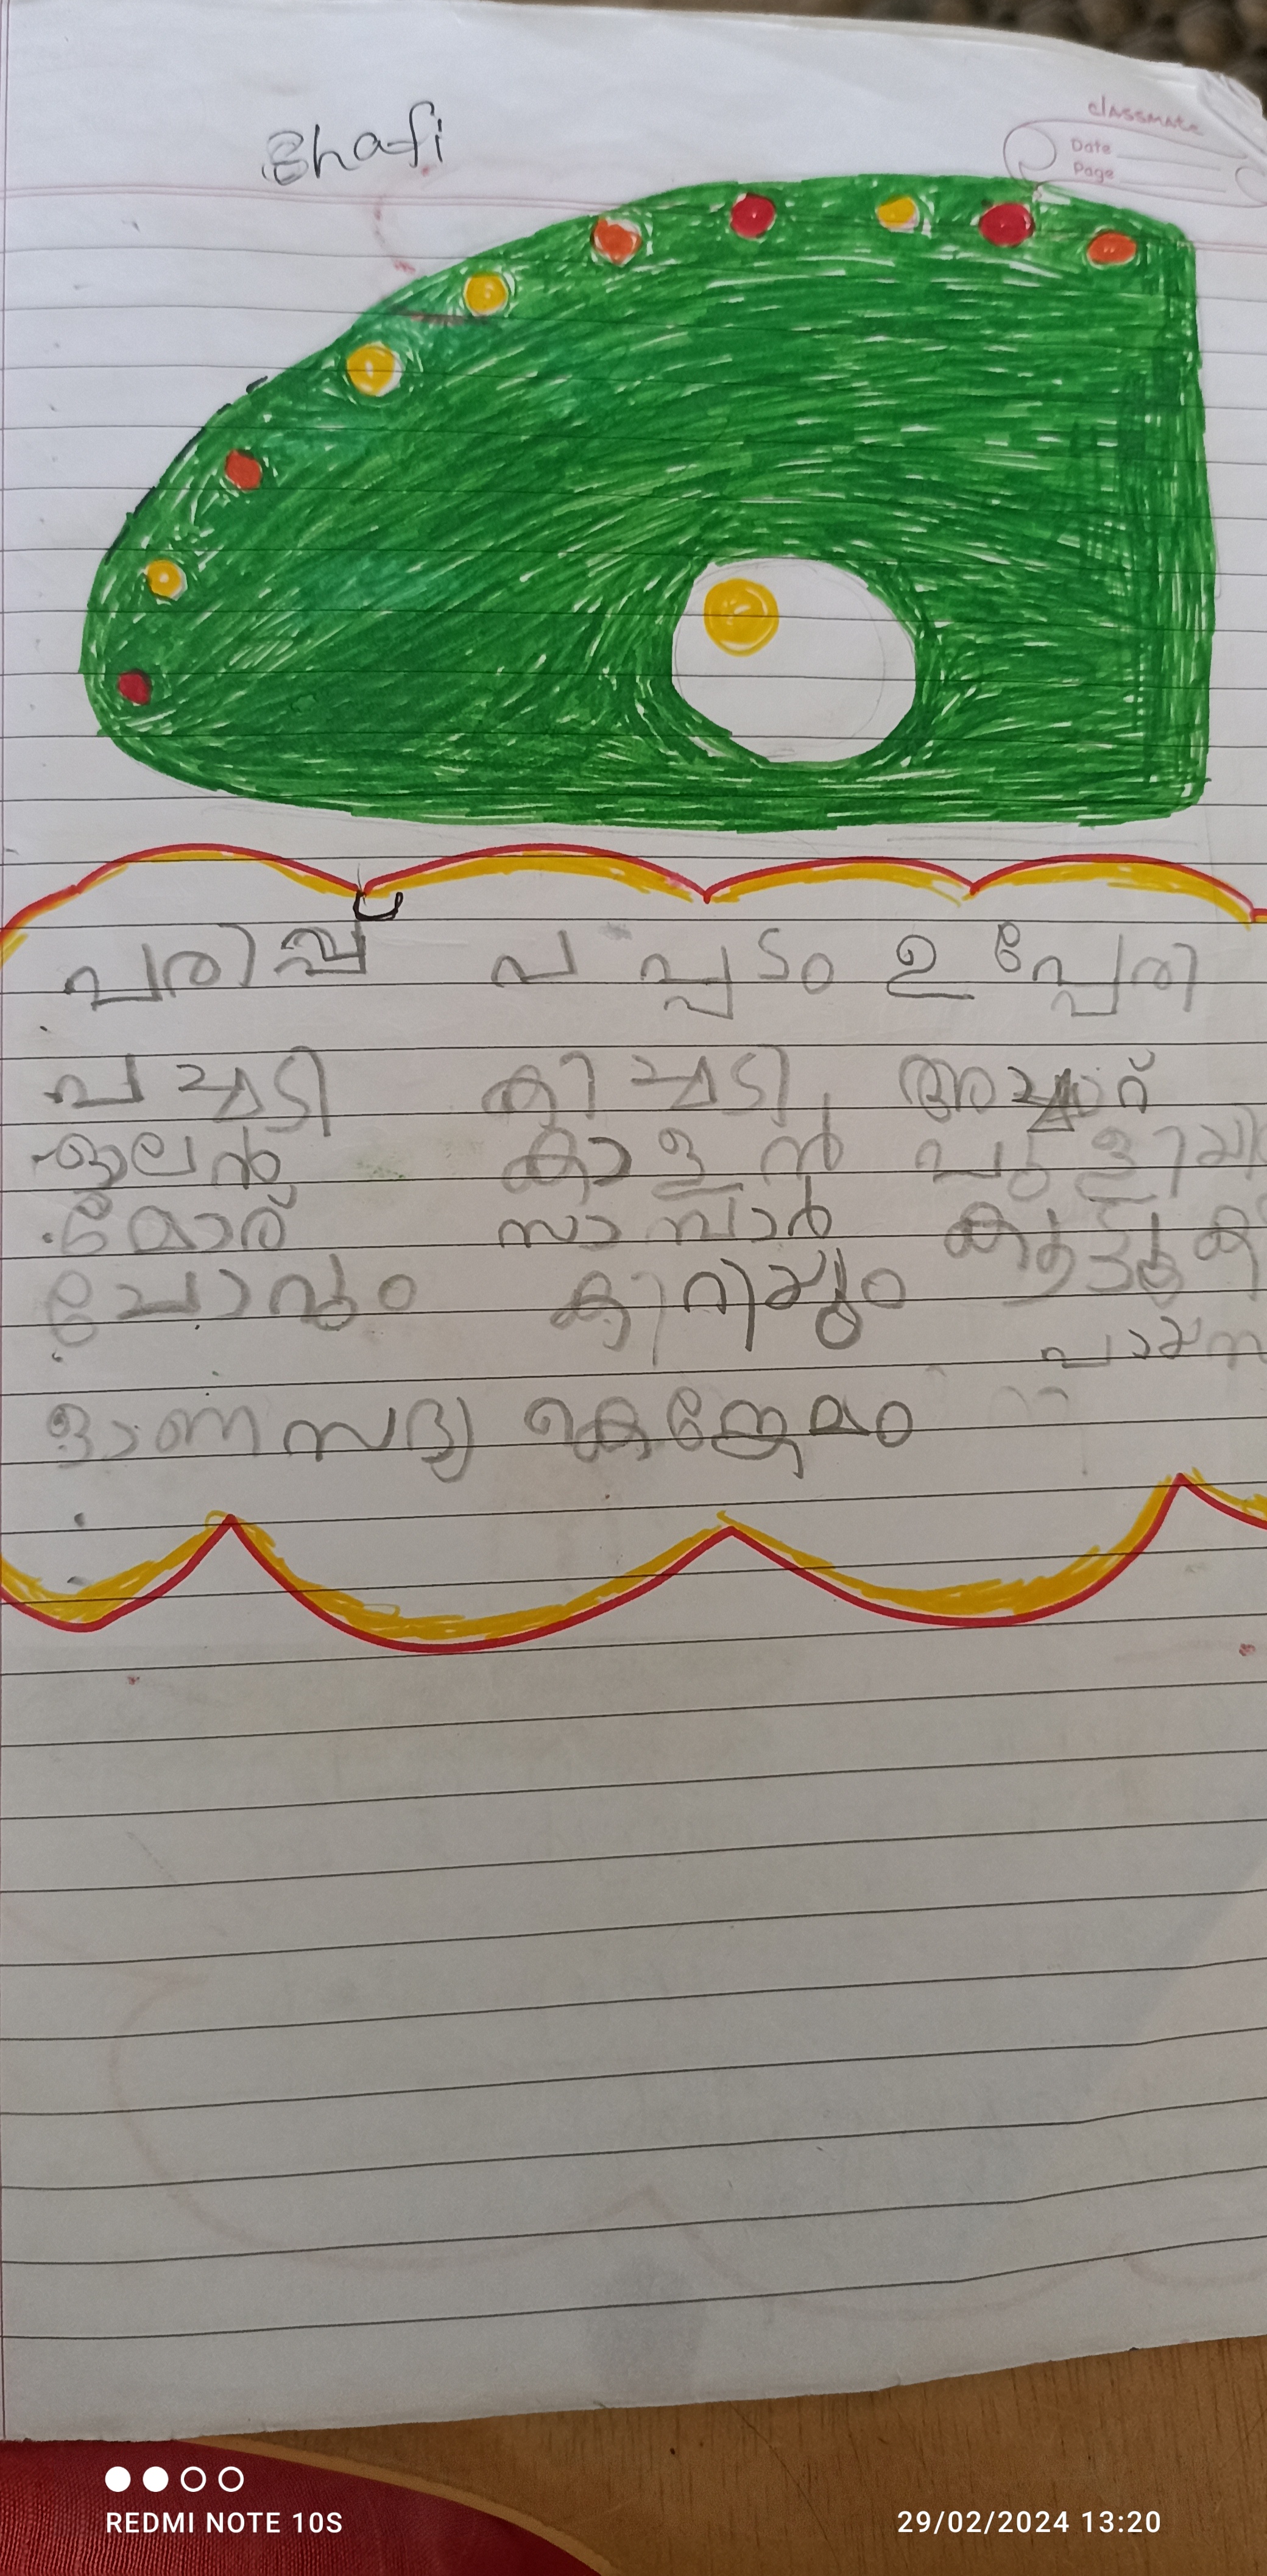 Shafi
classmate
Date
Page
പരിപ്പ് പപ്പടം ഉപ്പേരി
പച്ചടി കിച്ചടി, അച്ചാറ്
ഓലൻ കാളൻ പുളിയി
മോര് സാമ്പാർ കൂട്ടുക
ചോറും കിറിയും
പായസ
ഓണസദ്യ കെങ്കേമം
REDMI NOTE 10S
29/02/2024 13:20